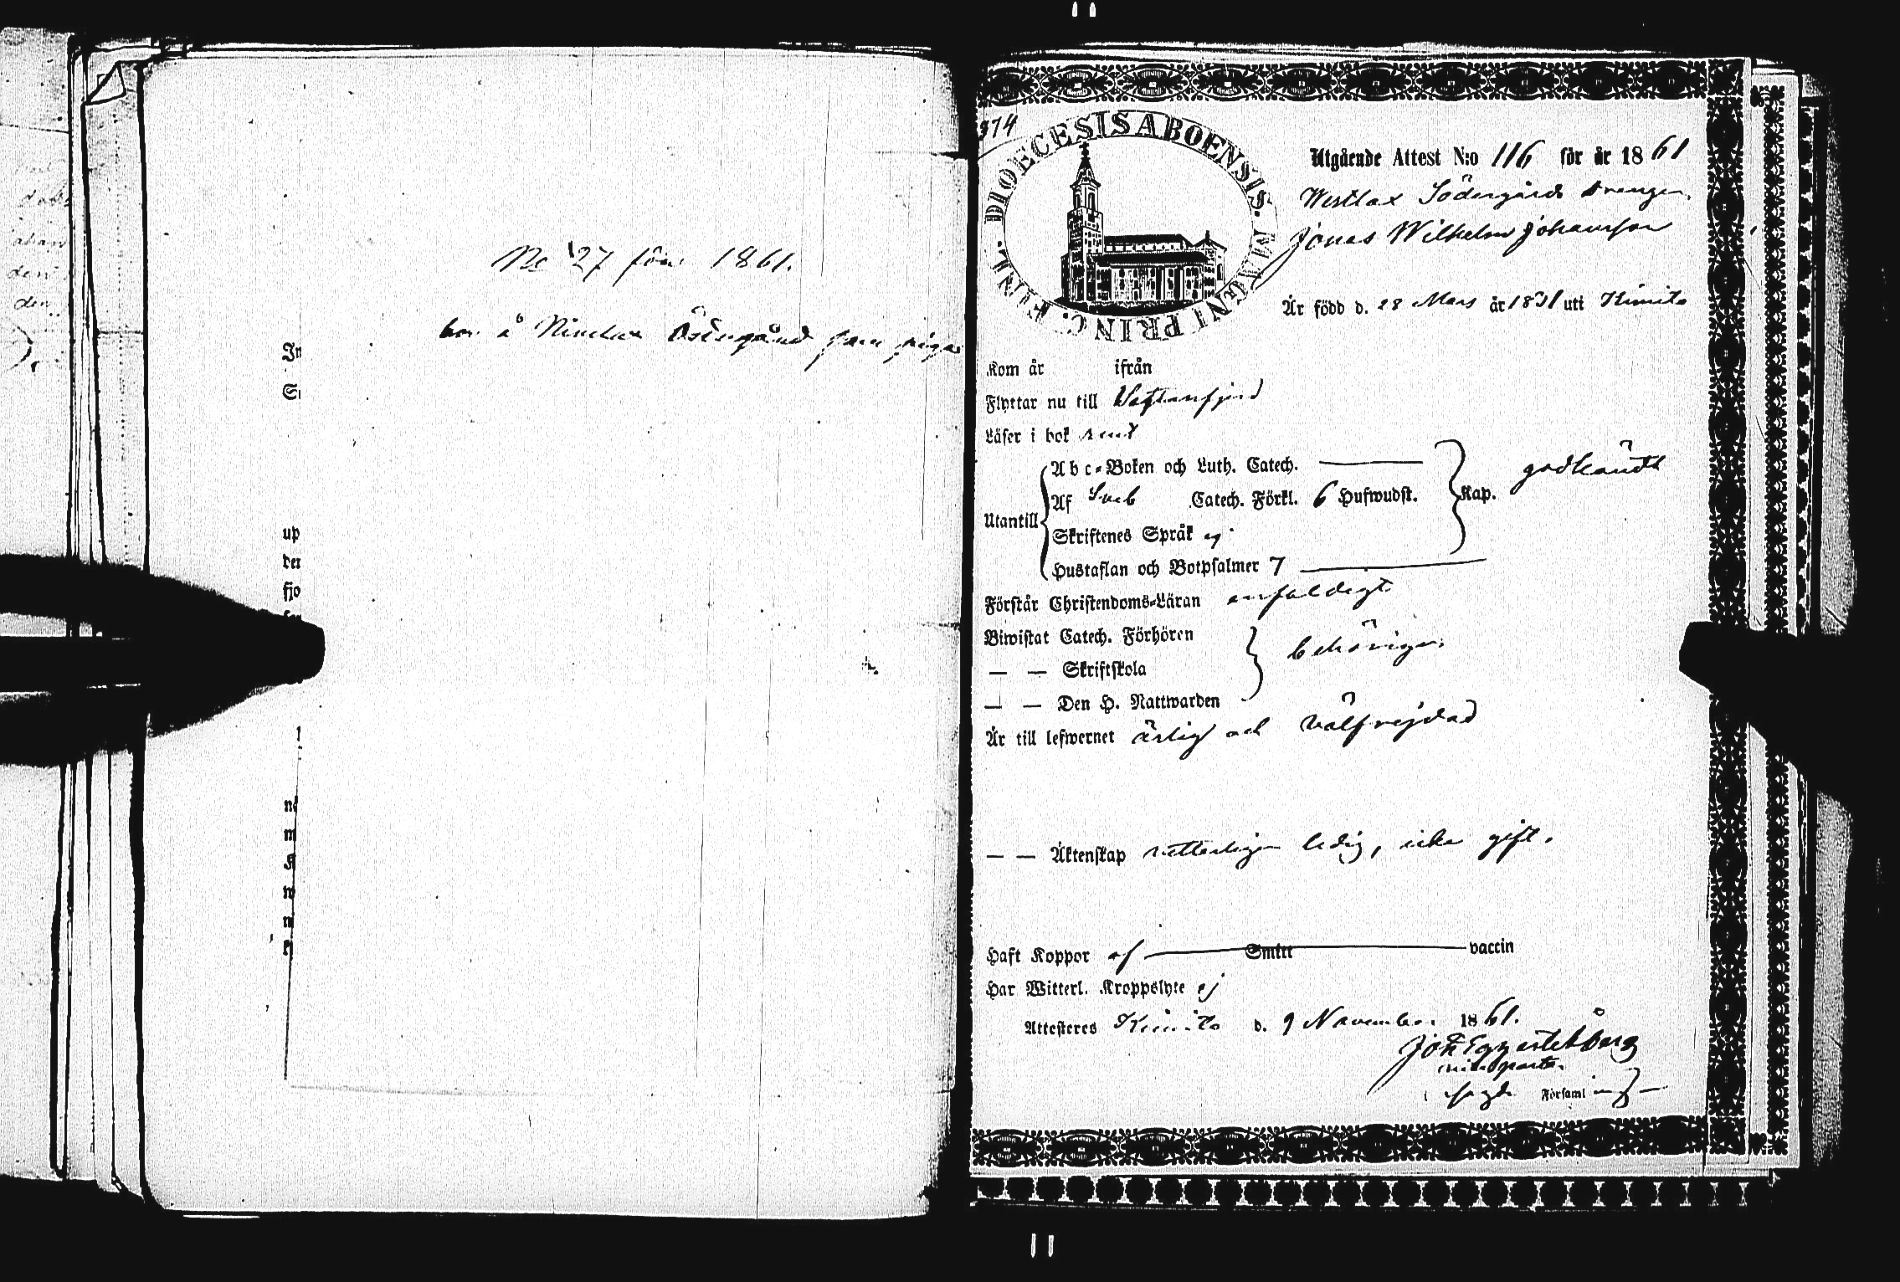 No 27 för 1861.
bor å Östergård som piga
In
up
der
fjo
374
DIOECESIS ABOENSIS. M. AENI PRINC. FINL.
Utgående Attest N:o 116 för år 1861
Westlax Södergårds drengen
Jonas Wilhelm Johansson
Är född d. 28 Mars år 1831 uti Kimito
Kom år ifrån
Flyttar nu till Westanfjerd
Läser i bok rent
Abc-Boken och Luth. Catech. —
Utantill
Af Sveb Catech. Förkl. 6 Hufwudst. Kap. godkändt
Skriftenes Språk ej
Hustaflan och Botpsalmer 7 —
Förstår Christendoms-Läran enfaldigt
Biwistat Catech. Förhören
— — Skriftskola behörigen
— — Den H. Nattwarden
Är till lefwernet ärlig och välfrejdad
— — Äktenskap veterligen ledig, icke gift.
Haft Koppor af — Smitt — vaccin
Har Witterl. Kroppslyte ej
Attesteres Kimito d. 9 November 1861.
Församl